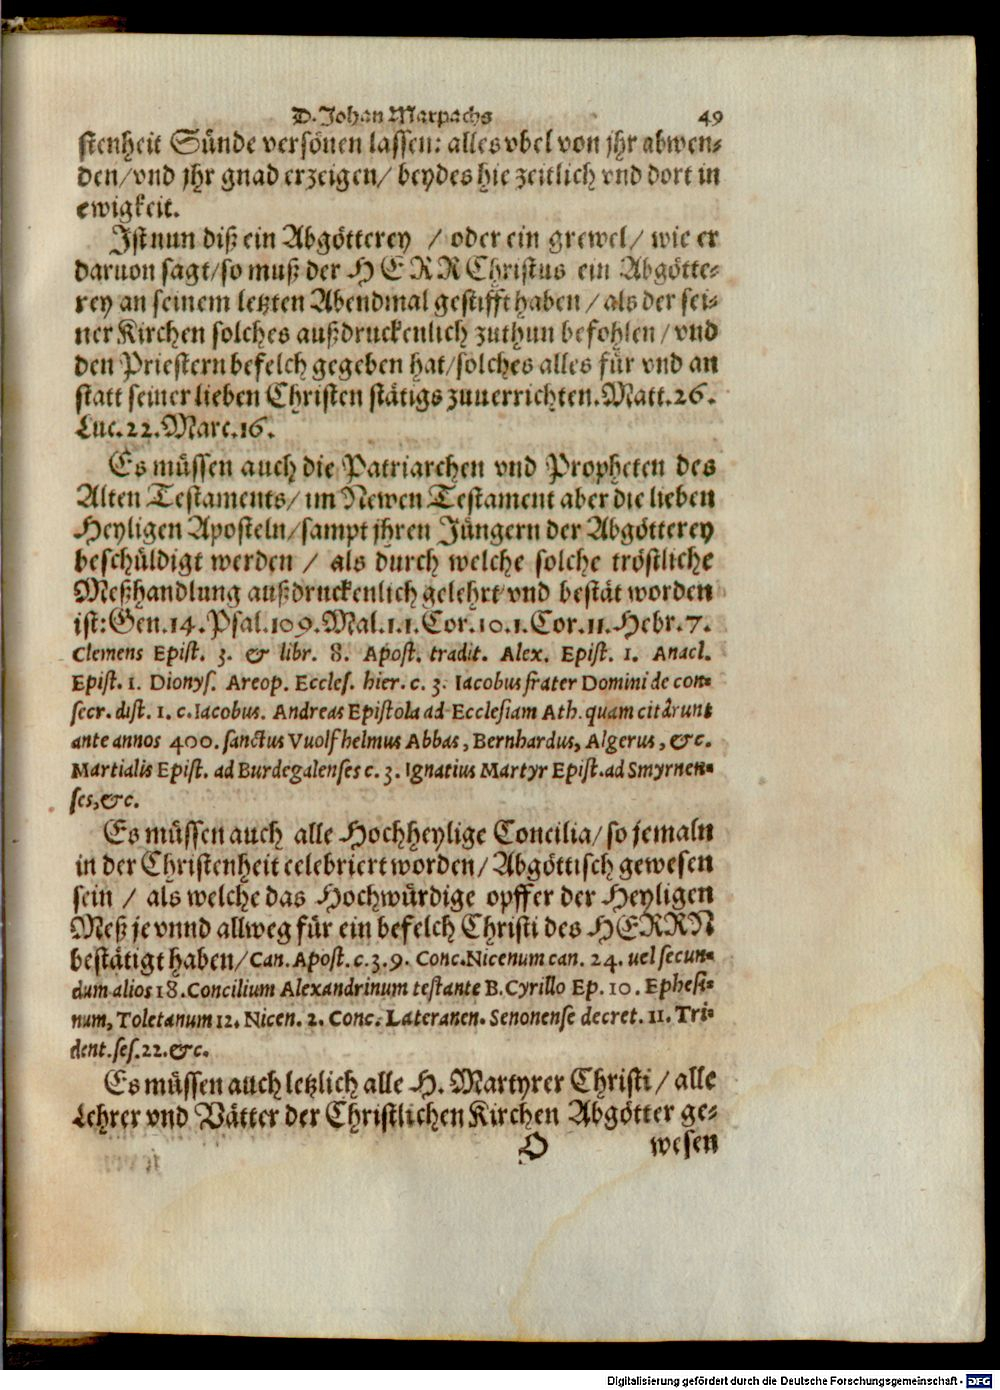 D. Johan Marpachs 49
stenheit Sünde versönen lassen: alles vbel von jhr abwen-
den/ vnd jhr gnad erzeigen/ beydes hie zeitlich vnd dort in
ewigkeit.
Ist nun diß ein Abgötterey / oder ein grewel/ wie er
daruon sagt/ so muß der HERR Christus ein Abgötte-
rey an seinem letzten Abendmal gestifft haben / als der sei-
ner Kirchen solches außdruckenlich zuthun befohlen / vnd
den Priestern befelch gegeben hat/ solches alles für vnd an
statt seiner lieben Christen stätigs zuuerrichten. Matt. 26.
Luc. 22. Marc. 16.
Es müssen auch die Patriarchen vnd Propheten des
Alten Testaments/ im Newen Testament aber die lieben
Heyligen Aposteln/ sampt jhren Jüngern der Abgötterey
beschüldigt werden / als durch welche solche tröstliche
Meßhandlung außdruckenlich gelehrt vnd bestät worden
ist: Gen. 14. Psal. 109. Mal. 1. 1. Cor. 10. 1. Cor. 11. Hebr. 7.
Clemens Epist. 3. & libr. 8. Apost. tradit. Alex. Epist. 1. Anacl.
Epist. 1. Dionys. Areop. Eccles. hier. c. 3. Iacobus frater Domini de con-
secr. dist. 1. c. Iacobus. Andreas Epistola ad Ecclesiam Ath. quam citârunt
ante annos 400. sanctus Vuolfhelmus Abbas, Bernhardus, Algerus, &c.
Martialis Epist. ad Burdegalenses c. 3. Ignatius Martyr Epist. ad Smyrnen-
ses, &c.
Es müssen auch alle Hochheylige Concilia/ so jemaln
in der Christenheit celebriert worden/ Abgöttisch gewesen
sein / als welche das Hochwürdige opffer der Heyligen
Meß je vnnd allweg für ein befelch Christi des HERRN
bestätigt haben/ Can. Apost. c. 3. 9. Conc. Nicenum can. 24. uel secun-
dum alios 18. Concilium Alexandrinum testante B. Cyrillo Ep. 10. Ephesi-
num, Toletanum 12. Nicen. 2. Conc. Lateranen. Senonense decret. 11. Tri-
dent. ses. 22. &c.
Es müssen auch letzlich alle H. Martyrer Christi / alle
Lehrer vnd Vätter der Christlichen Kirchen Abgötter ge-
O wesen
Digitalisierung gefördert durch die Deutsche Forschungsgemeinschaft - DFG